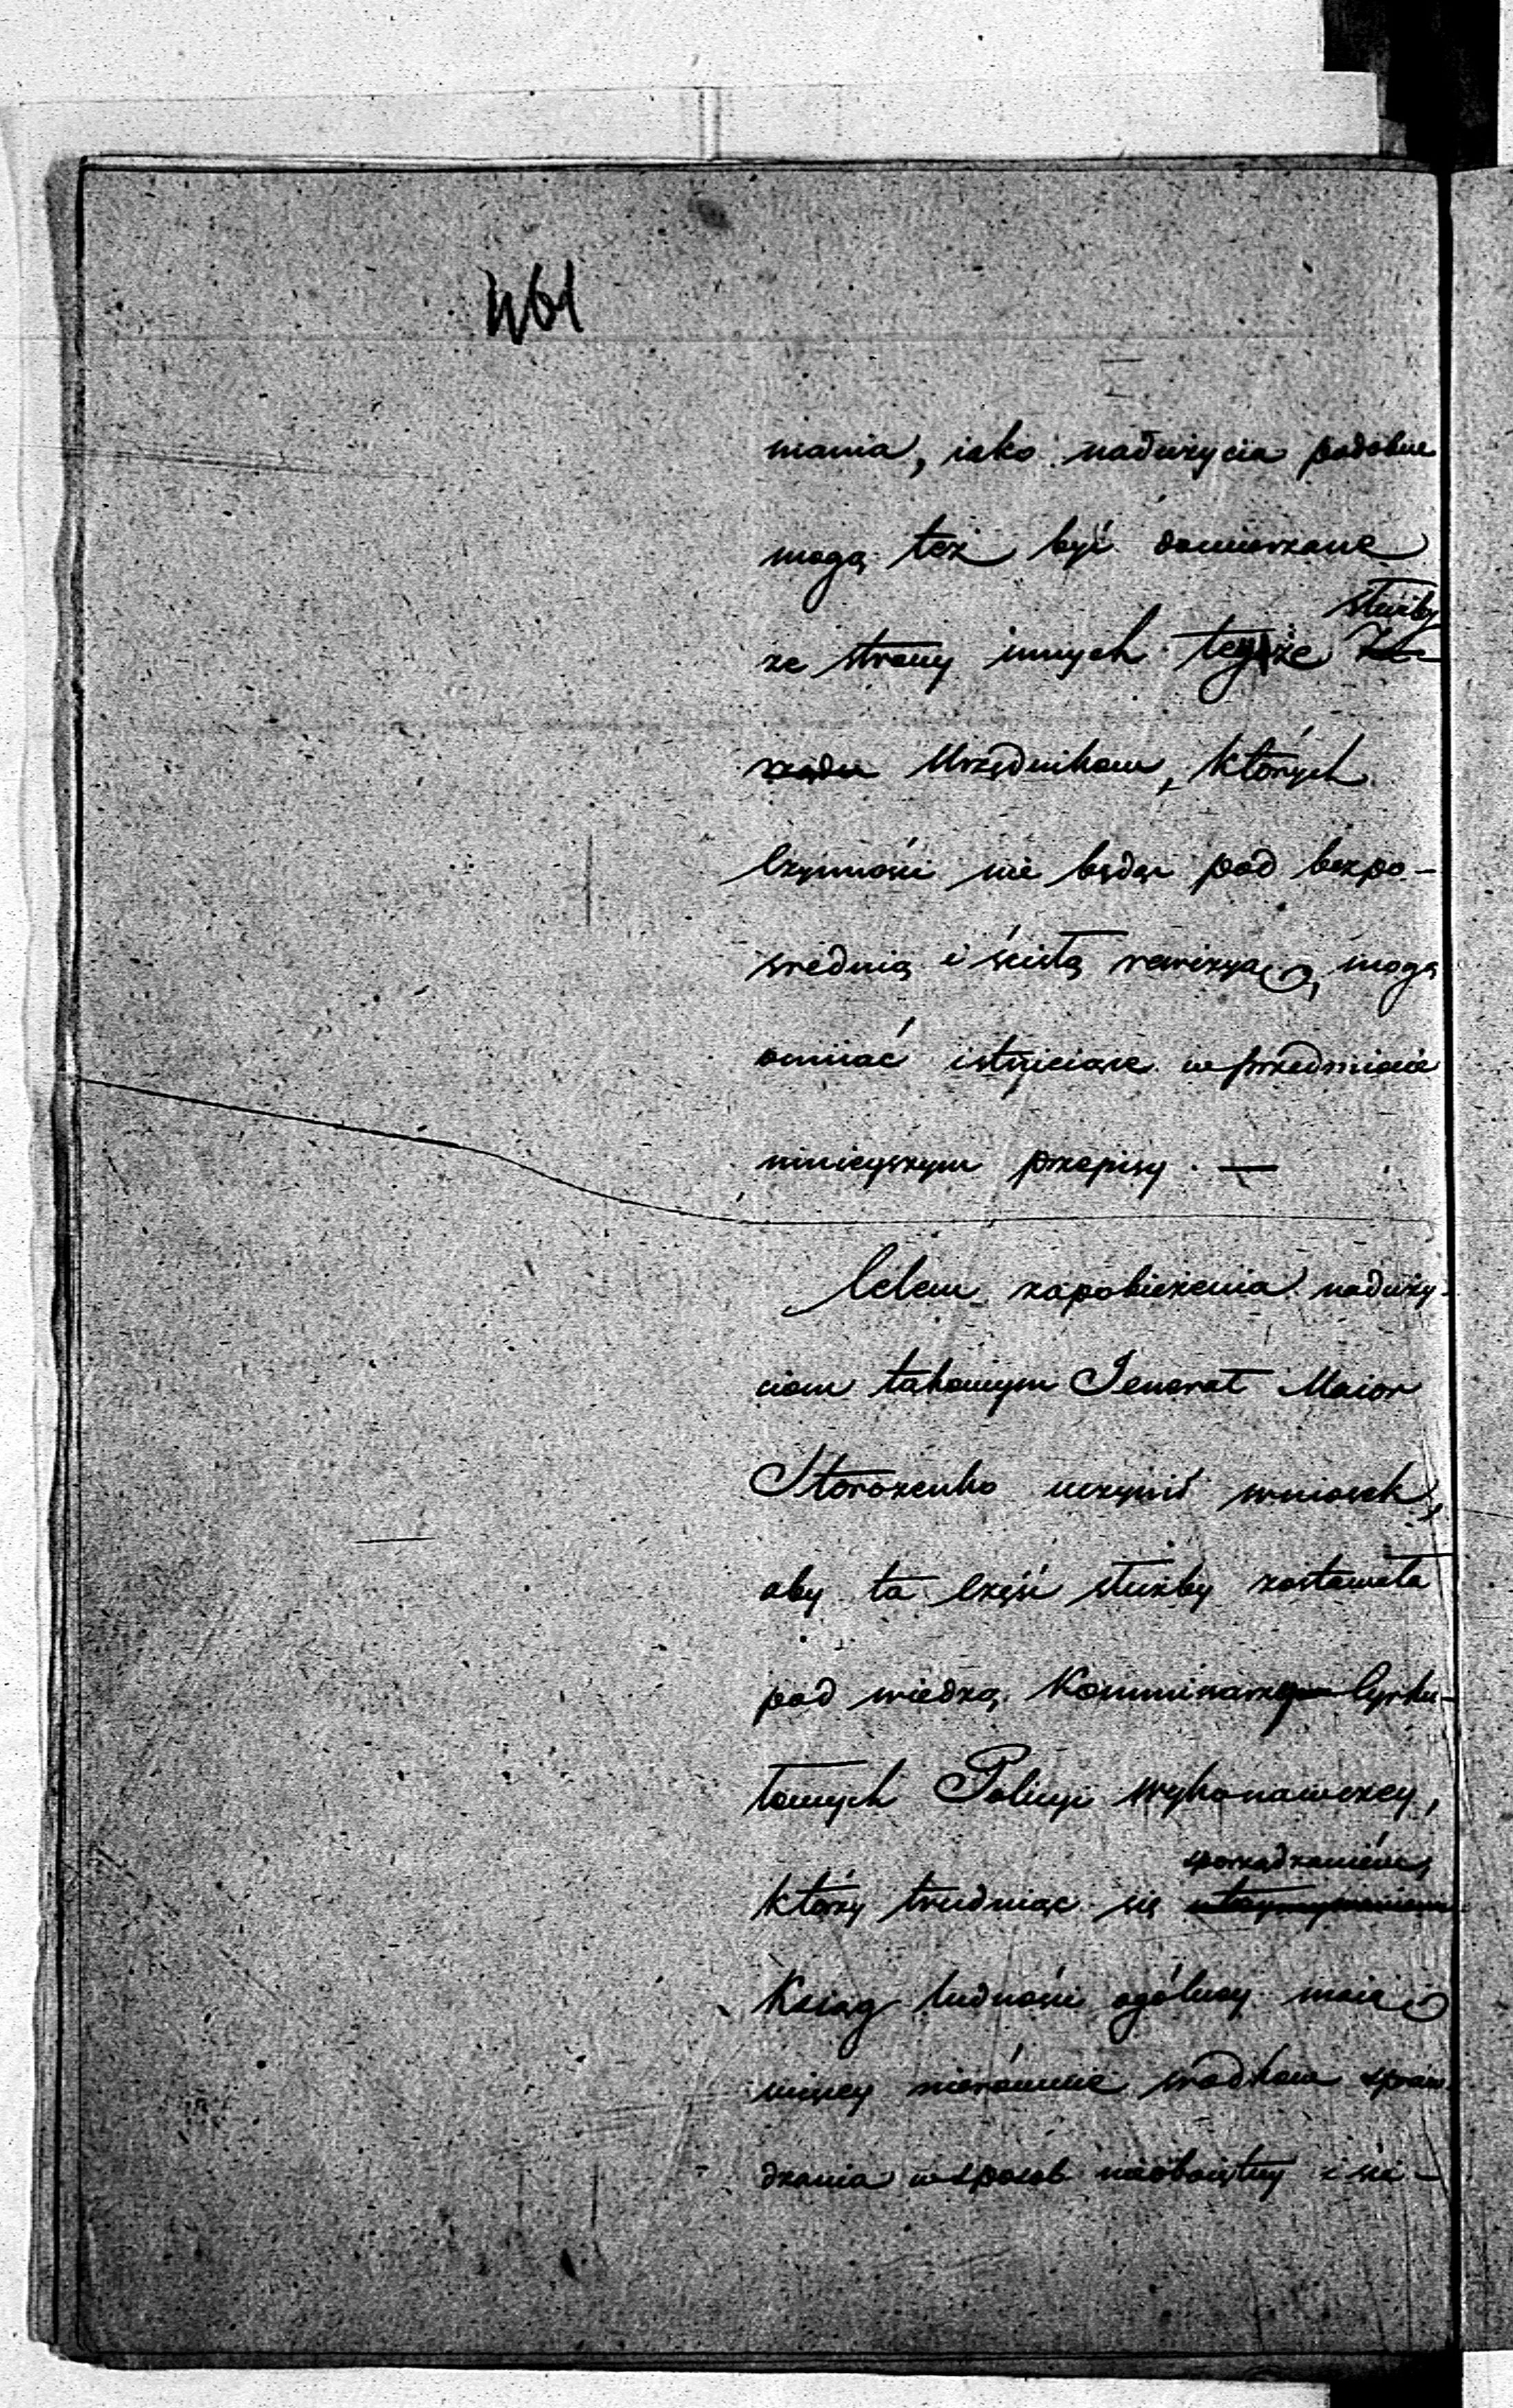 mania, iako nadużycia podobne
mogą też być domierzane
służby
ze strony innych teyże Za-
rządu Urzędników, których
Czynności nie będąc pod bezpo-
srednią i ścisłą rewizyą, mogą
omiiać istnieiące w przedmiocie
ninieyszym przepisy. —
Celem zapobieżenia naduży-
ciom takowym Jenerał Maior
Storożenko uczynił wniosek,
aby ta część służby zostawała
pod wiedzą Kommissarzy Cyrku-
łowych Policyi wykonawczey,
sporządzaniém
którzy trudniąc się utrzymywaniem
Ksiąg ludności ogólney maią
więcey nierównie srodków spraw-
dzania w sposob nieobojętny i sci-